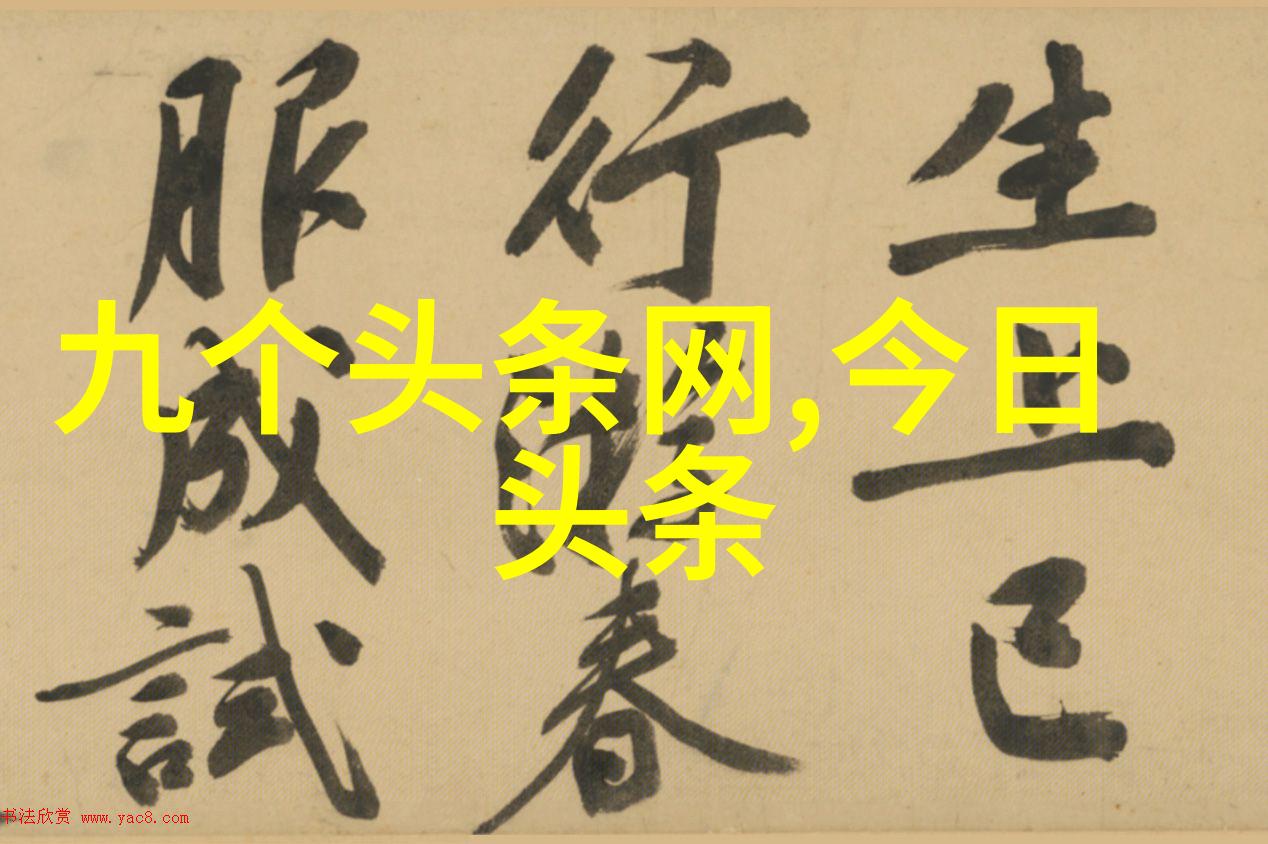 九个头条网,今日
头条
生上巳
行時春
服成試
书法欣赏 www.yac8.com